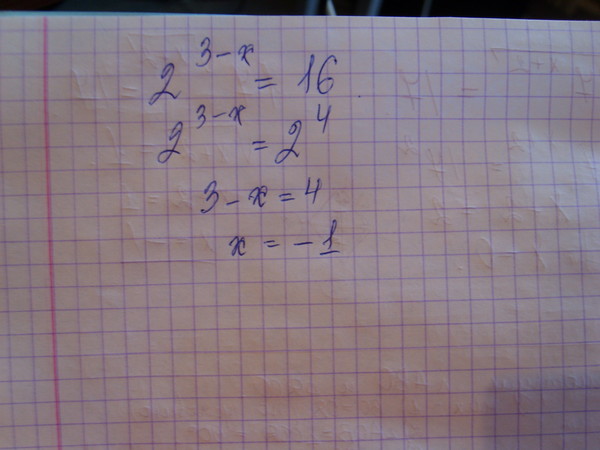 2^{3-x} = 16
2^{3-x} = 2^4
3 - x = 4
x = - 1